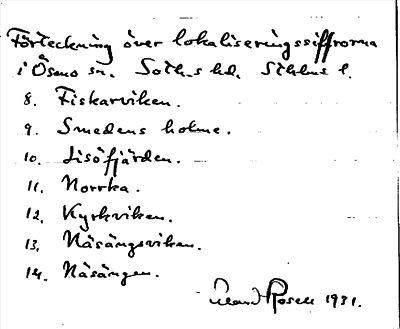 Förteckning över lokaliseringssiffrorna
i Ösmo sn. Soth.s hd. Sthlms l.
8. Fiskarviken.
9. Smedens holme.
10. Lisöfjärden.
11. Norrka.
12. Kyrkviken.
13. Näsängsviken.
14. Näsängen.
Rosell 1931.